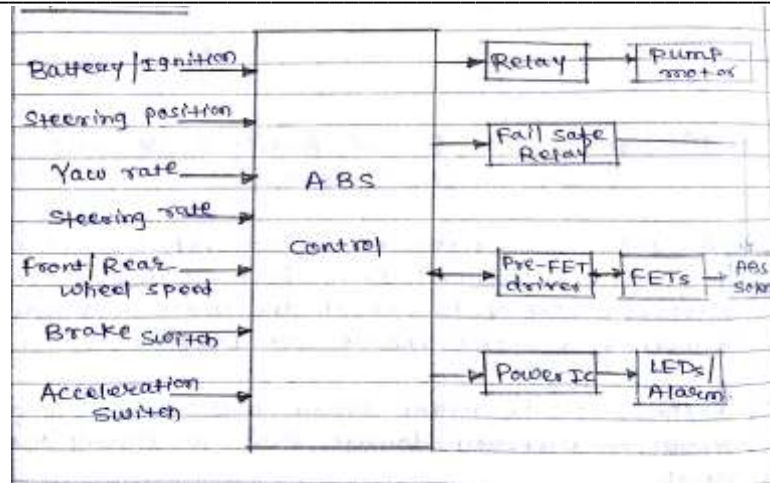 Battery/Ignition
Steering position
Yaw rate
Steering rate
Front/Rear
wheel speed
Brake switch
Acceleration
Switch
ABS
Control
Relay
pump
motor
Fail safe
Relay
Pre-FET
driver
FETs
ABS
Power Ic
LEDs/
Alarm